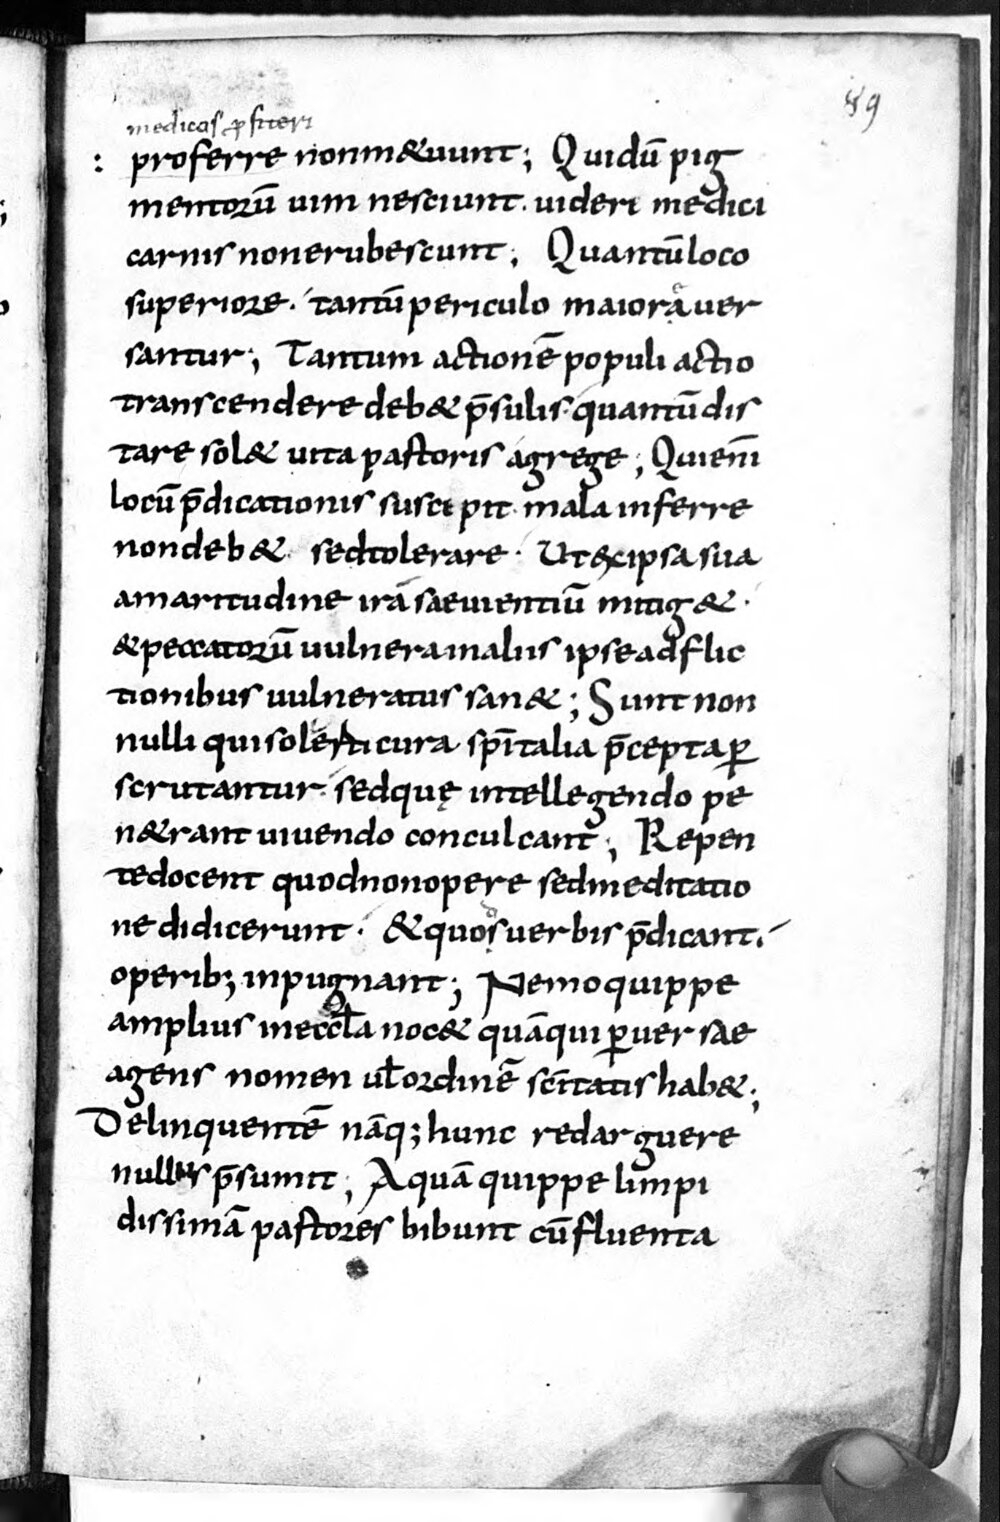 89
medicos ꝓfiteri
: proferre nonm&uunt; Quidū pig
mentorū uim nesciunt. uideri medici
carnis nonerubescunt; Quantūloco
superiore. tantūpericulo maiorą̊uer
santur; Tantum actionēpopuli actio
transcendere deb& p̄sulis. quantūdis
tare sol& uita pastoris agrege; Quieni͞
locūp̄dicationis suscipit. mala inferre
nondeb&. sedtolerare. Ut&xipsa sua
amaritudine irā saeuientiū mitig&.
&peccatorū uulneramaliis ipseadflic
tionibus uulneratus san&; Sunt non
nulli quisolerti cura sp̄italia p̄ceptaꝑ
scrutantur. sedquę intellegendo pe
n&rant uiuendo conculcant; Repen
tedocent quodnonopere sedmeditatio
ne didicerunt. &quos uerbis p̄dicant.
operibꝫ inpugnant; Nemoquippe
amplius ineccl̄a noc& quāqui ꝑuersae
agens nomen ul̄ordinē sc̄itatis hab&;
Delinquentē nāqꝫ hunc redarguere
nullus p̄sumit; Aquā quippe limpi
dissimā pastores bibunt cū fluenta